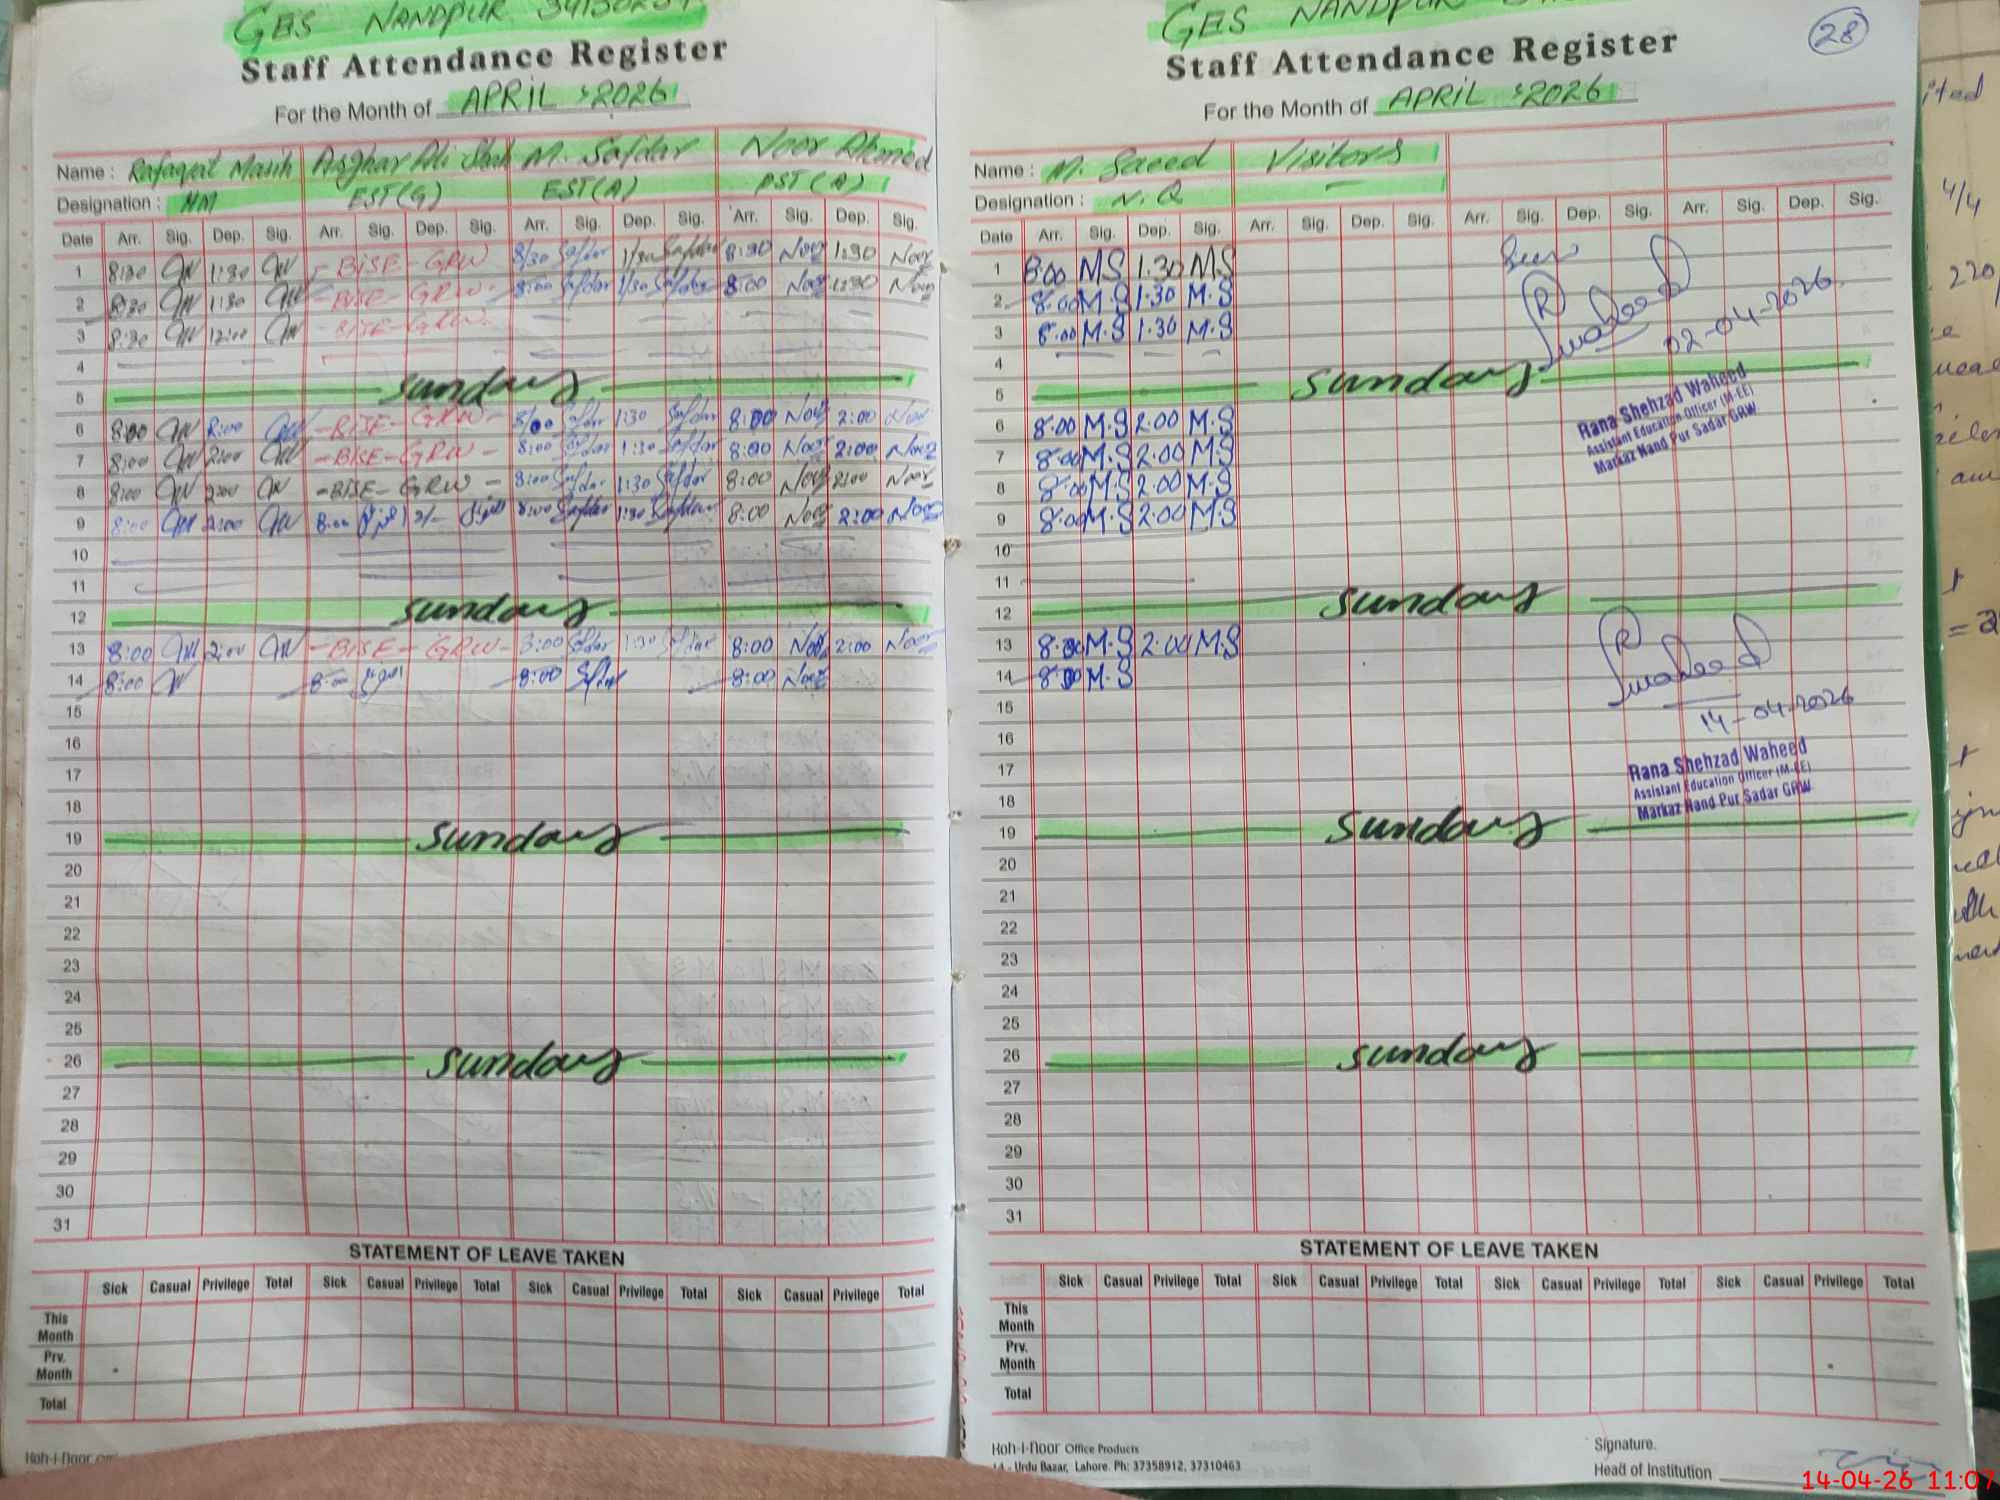 GES NANDPUR
Staff Attendance Register
For the Month of APRIL 2026
Name : Rafaqat Masih Asghar Ali Shah M. Safdar Noor Ahmed
Designation : HM EST(G) EST(A) PST(A)
Date Arr. Sig. Dep. Sig. Arr. Sig. Dep. Sig. Arr. Sig. Dep. Sig. Arr. Sig. Dep. Sig.
1 8:30 1:30 -BISE-GRW 8/30 Safdar 1/30 Safdar 8:30 Noor 1:30 Noor
2 8:30 1:30 -BISE-GRW- 8:00 Safdar 1/30 Safdar 8:00 Noor 1:30 Noor
3 8:30 12:00 -BISE-GRW-
4
5 Sunday
6 8:00 2:00 -BISE-GRW- 8/00 Safdar 1:30 Safdar 8:00 Noor 2:00 Noor
7 8:00 2:00 -BISE-GRW- 8:00 Safdar 1:30 Safdar 8:00 Noor 2:00 Noor
8 8:00 2:00 -BISE-GRW- 8:00 Safdar 1:30 Safdar 8:00 Noor 2:00 Noor
9 8:00 2:00 8:00 2/- 8:00 Safdar 1:30 Safdar 8:00 Noor 2:00 Noor
10
11
12 Sunday
13 8:00 2:00 -BISE-GRW- 8:00 Safdar 1:30 Safdar 8:00 Noor 2:00 Noor
14 8:00 8:00 8:00 Safdar 8:00 Noor
15
16
17
18
19 Sunday
20
21
22
23
24
25
26 Sunday
27
28
29
30
31
STATEMENT OF LEAVE TAKEN
Sick Casual Privilege Total Sick Casual Privilege Total Sick Casual Privilege Total Sick Casual Privilege Total
This Month
Prv. Month
Total
Koh-i-noor
GES NANDPUR
28
Staff Attendance Register
For the Month of APRIL 2026
Name : M. Saeed Visitors
Designation : N.Q -
Date Arr. Sig. Dep. Sig. Arr. Sig. Dep. Sig. Arr. Sig. Dep. Sig. Arr. Sig. Dep. Sig.
1 8:00 M.S 1:30 M.S Seen
2 8:00 M.S 1:30 M.S
3 8:00 M.S 1:30 M.S 02-04-2026
4
5 Sunday
Rana Shehzad Waheed
Assistant Education Officer (M-EE)
Markaz Nand Pur Sadar GRW
6 8:00 M.S 2:00 M.S
7 8:00 M.S 2:00 M.S
8 8:00 M.S 2:00 M.S
9 8:00 M.S 2:00 M.S
10
11
12 Sunday
13 8:00 M.S 2:00 M.S
14 8:00 M.S
15 14-04-2026
16
17
Rana Shehzad Waheed
Assistant Education Officer (M-EE)
Markaz Nand Pur Sadar GRW
18
19 Sunday
20
21
22
23
24
25
26 Sunday
27
28
29
30
31
STATEMENT OF LEAVE TAKEN
Sick Casual Privilege Total Sick Casual Privilege Total Sick Casual Privilege Total Sick Casual Privilege Total
This Month
Prv. Month
Total
Koh-i-noor Office Products
Urdu Bazar, Lahore. Ph: 37358912, 37310463
Signature.
Head of Institution
14-04-26 11:07